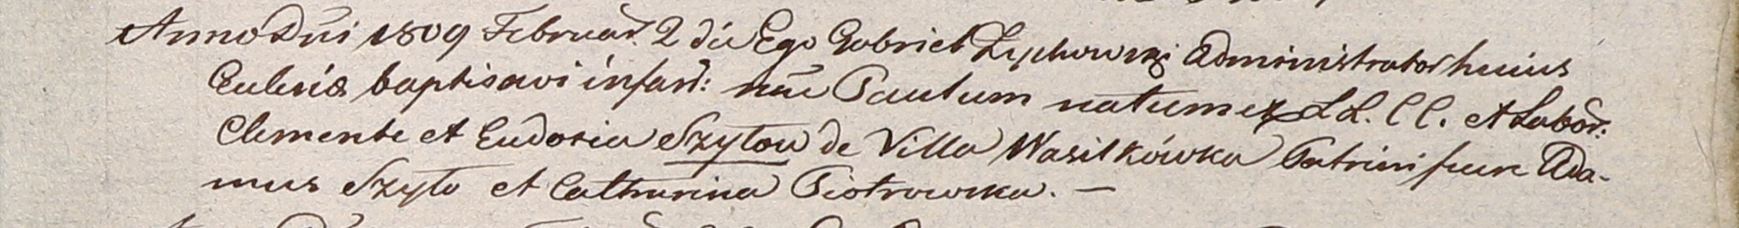 Anno Dni 1809 Februar. 2 die Ego Gabriel Lychowski Administrator huius
Eclesiæ baptisavi infan: nõe Paulum natum ex LL. CC. et Labor:
Clemente et Eudoxia Szytow de Villa Wasilkówka Patrini fuere Ada-
mus Szyto et Catharina Piotrowska. —